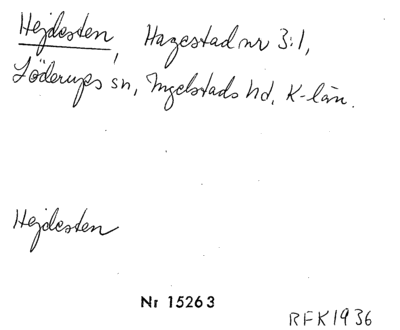 Hejdesten, Hagestad nr 3:1,
Löderups sn, Ingelstads hd, K-län.
Hejdesten
Nr 15263
RFK1936